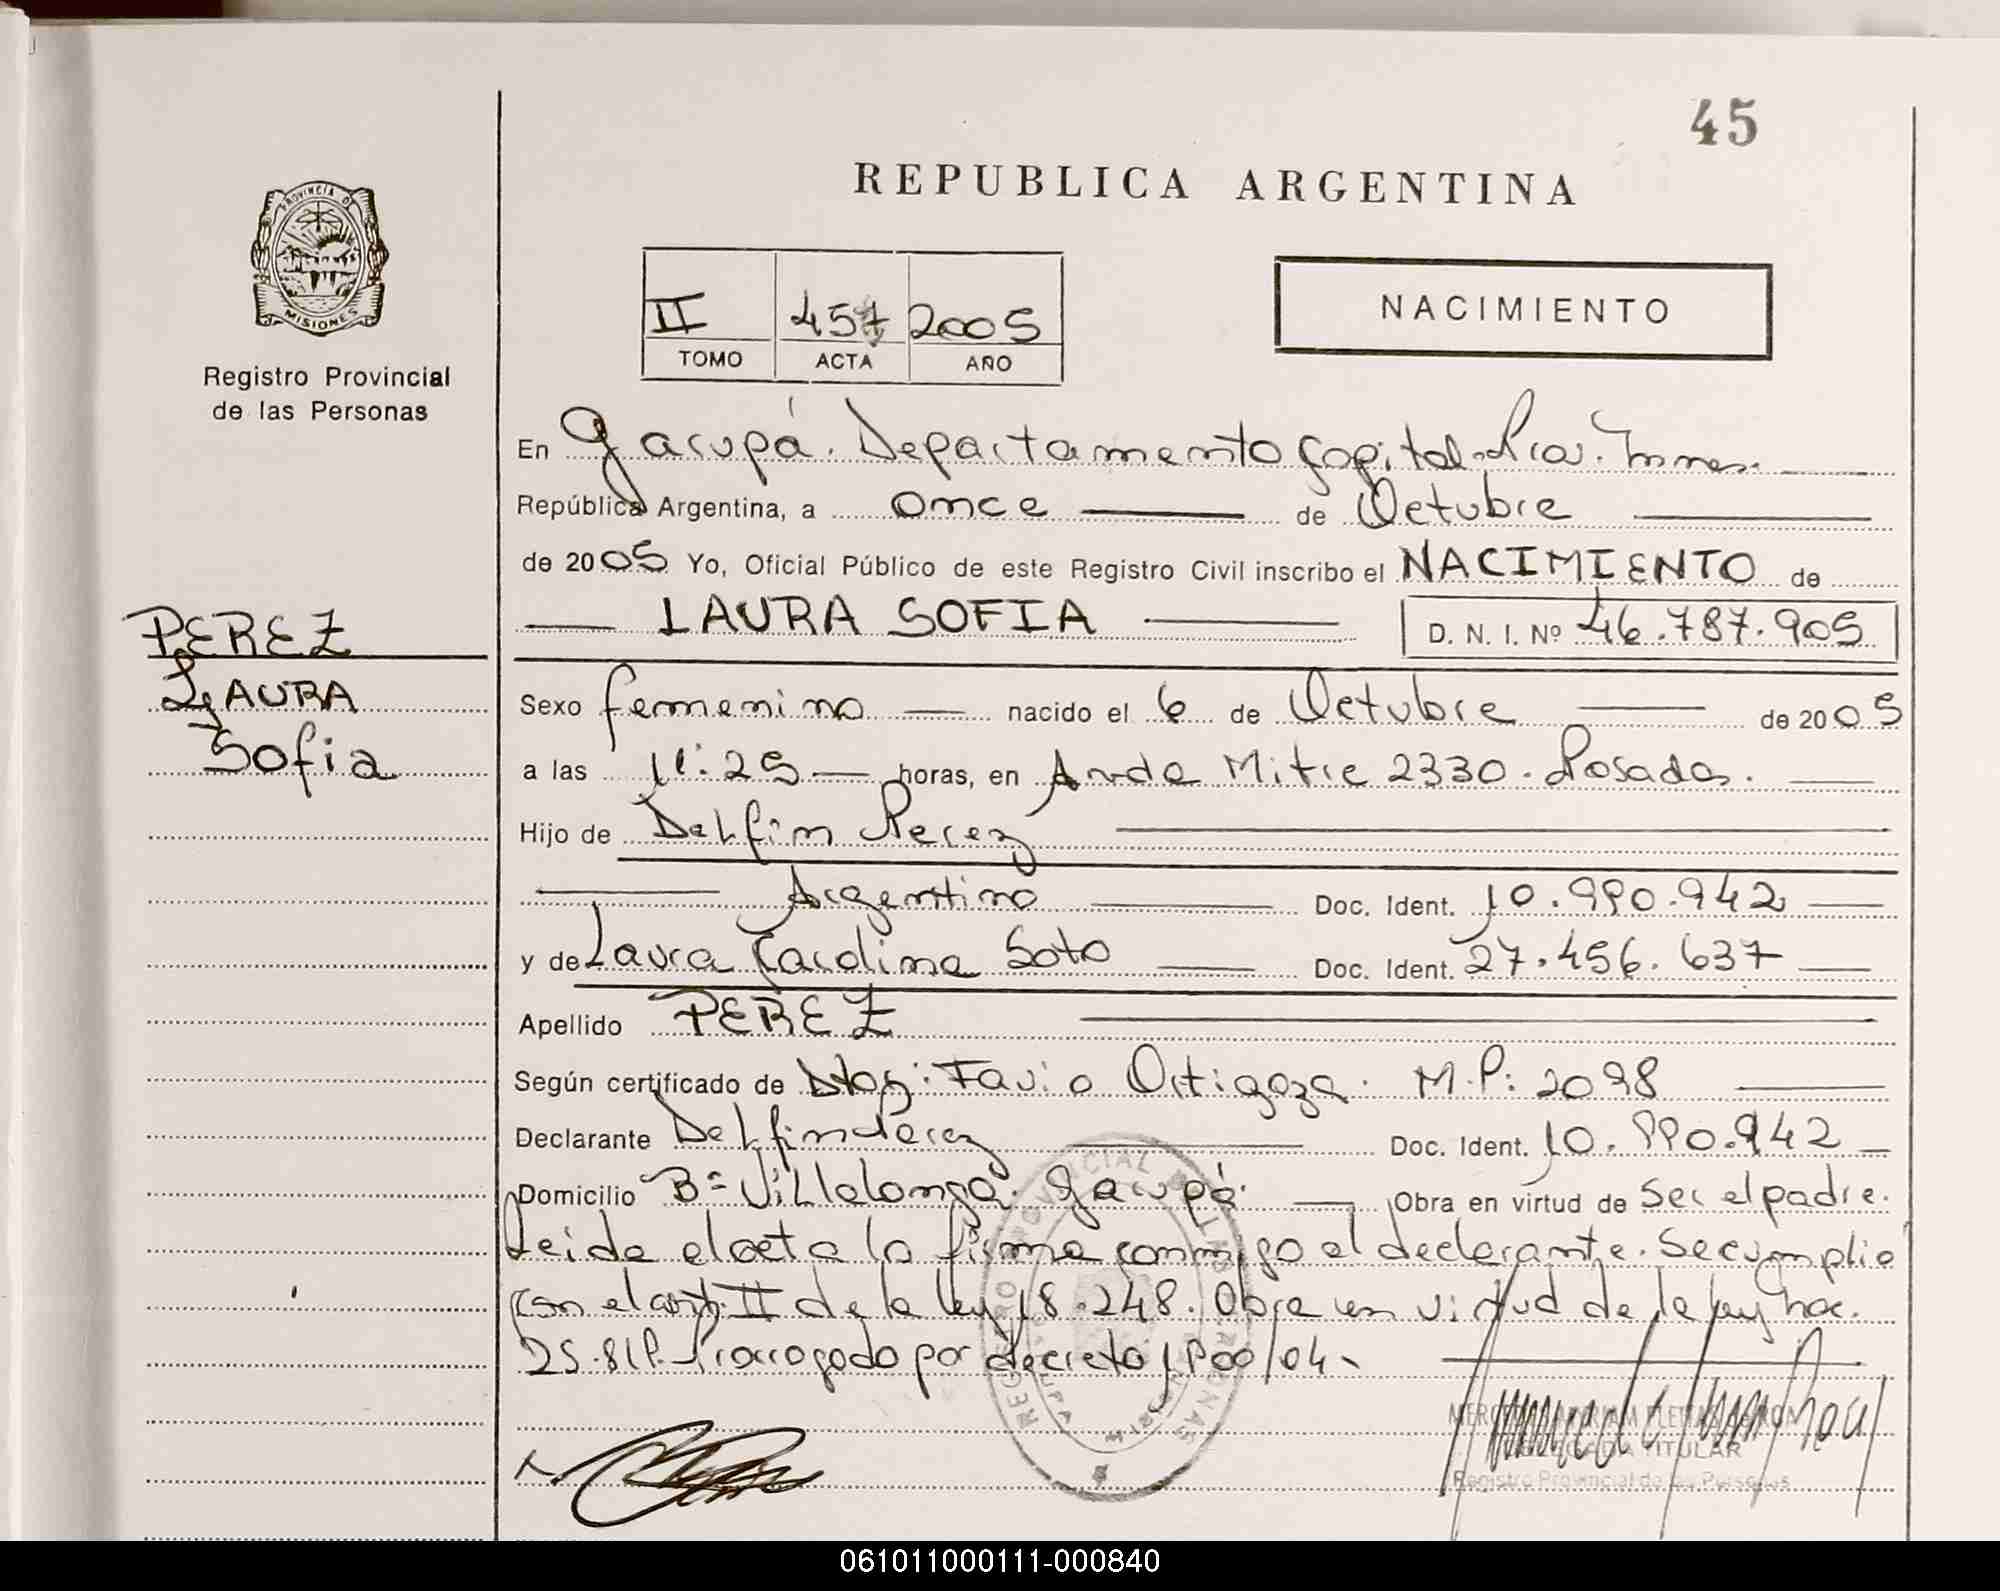 45
REPUBLICA ARGENTINA
PROVINCIA D
MISIONES
Registro Provincial
de las Personas
II 457 2005
TOMO ACTA AÑO
NACIMIENTO
En Garupá. Departamento Capital. Pcia. Mnes.
República Argentina, a once de Octubre
de 2005 Yo, Oficial Público de este Registro Civil inscribo el NACIMIENTO de
LAURA SOFIA D. N. I. Nº 46.787.905
PEREZ
LAURA
Sofia
Sexo femenino nacido el 6 de Octubre de 2005
a las 11:25 horas, en Avda Mitre 2330. Posadas.
Hijo de Delfin Perez
Argentino Doc. Ident. 10.990.942
y de Laura Carolina Soto Doc. Ident. 27.456.637
Apellido PEREZ
Según certificado de Favio Ortigoza. M.P: 2098
Declarante Delfin Perez Doc. Ident. 10.990.942
Domicilio Bº Villalonga. Garupá. Obra en virtud de ser el padre.
Leida el acta la firma conmigo el declarante. Se cumplio
con el art. II de la ley 18.248. Obra en virtud de la ley nac.
25.819. Prorrogado por decreto 1900/04
REGISTRO PROVINCIAL DE LAS PERSONAS
TITULAR
Registro Provincial de las Personas
061011000111-000840